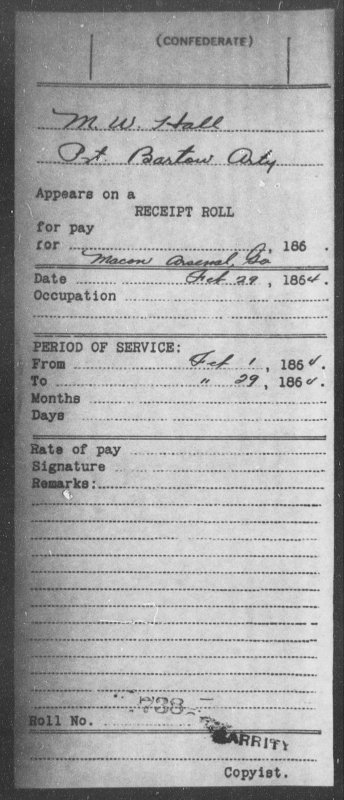 (CONFEDERATE)
M. W. Hall
Pvt Bartow Arty
Appears on a
RECEIPT ROLL
for pay
for , 186 .
Macon Arsenal, Ga
Date Feb 29, 1864.
Occupation
PERIOD OF SERVICE:
From Feb 1, 1864.
To " 29, 1864.
Months
Days
Rate of pay
Signature
Remarks:
Roll No. 738
GARRITY
Copyist.